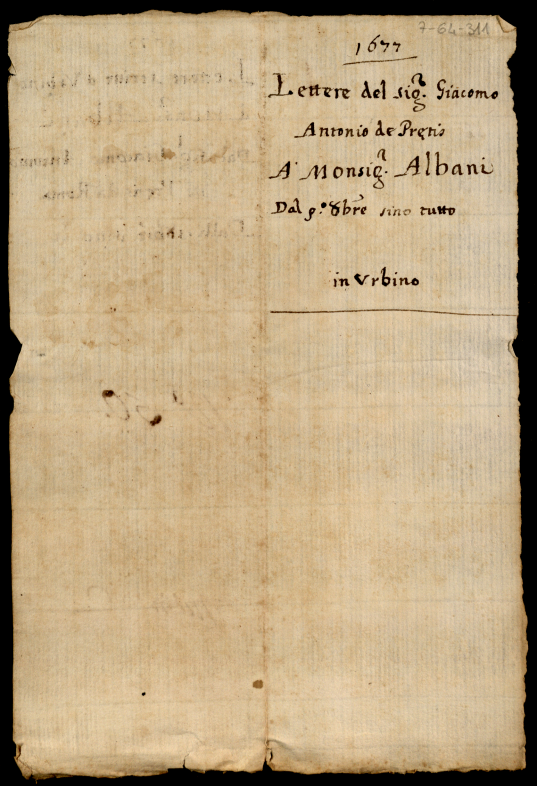 7-64-311
1677
Lettere del sigr. Giacomo
Antonio de Pretis
A' Monsigr. Albani
Dal p.º 8bre sino tutto
in Urbino